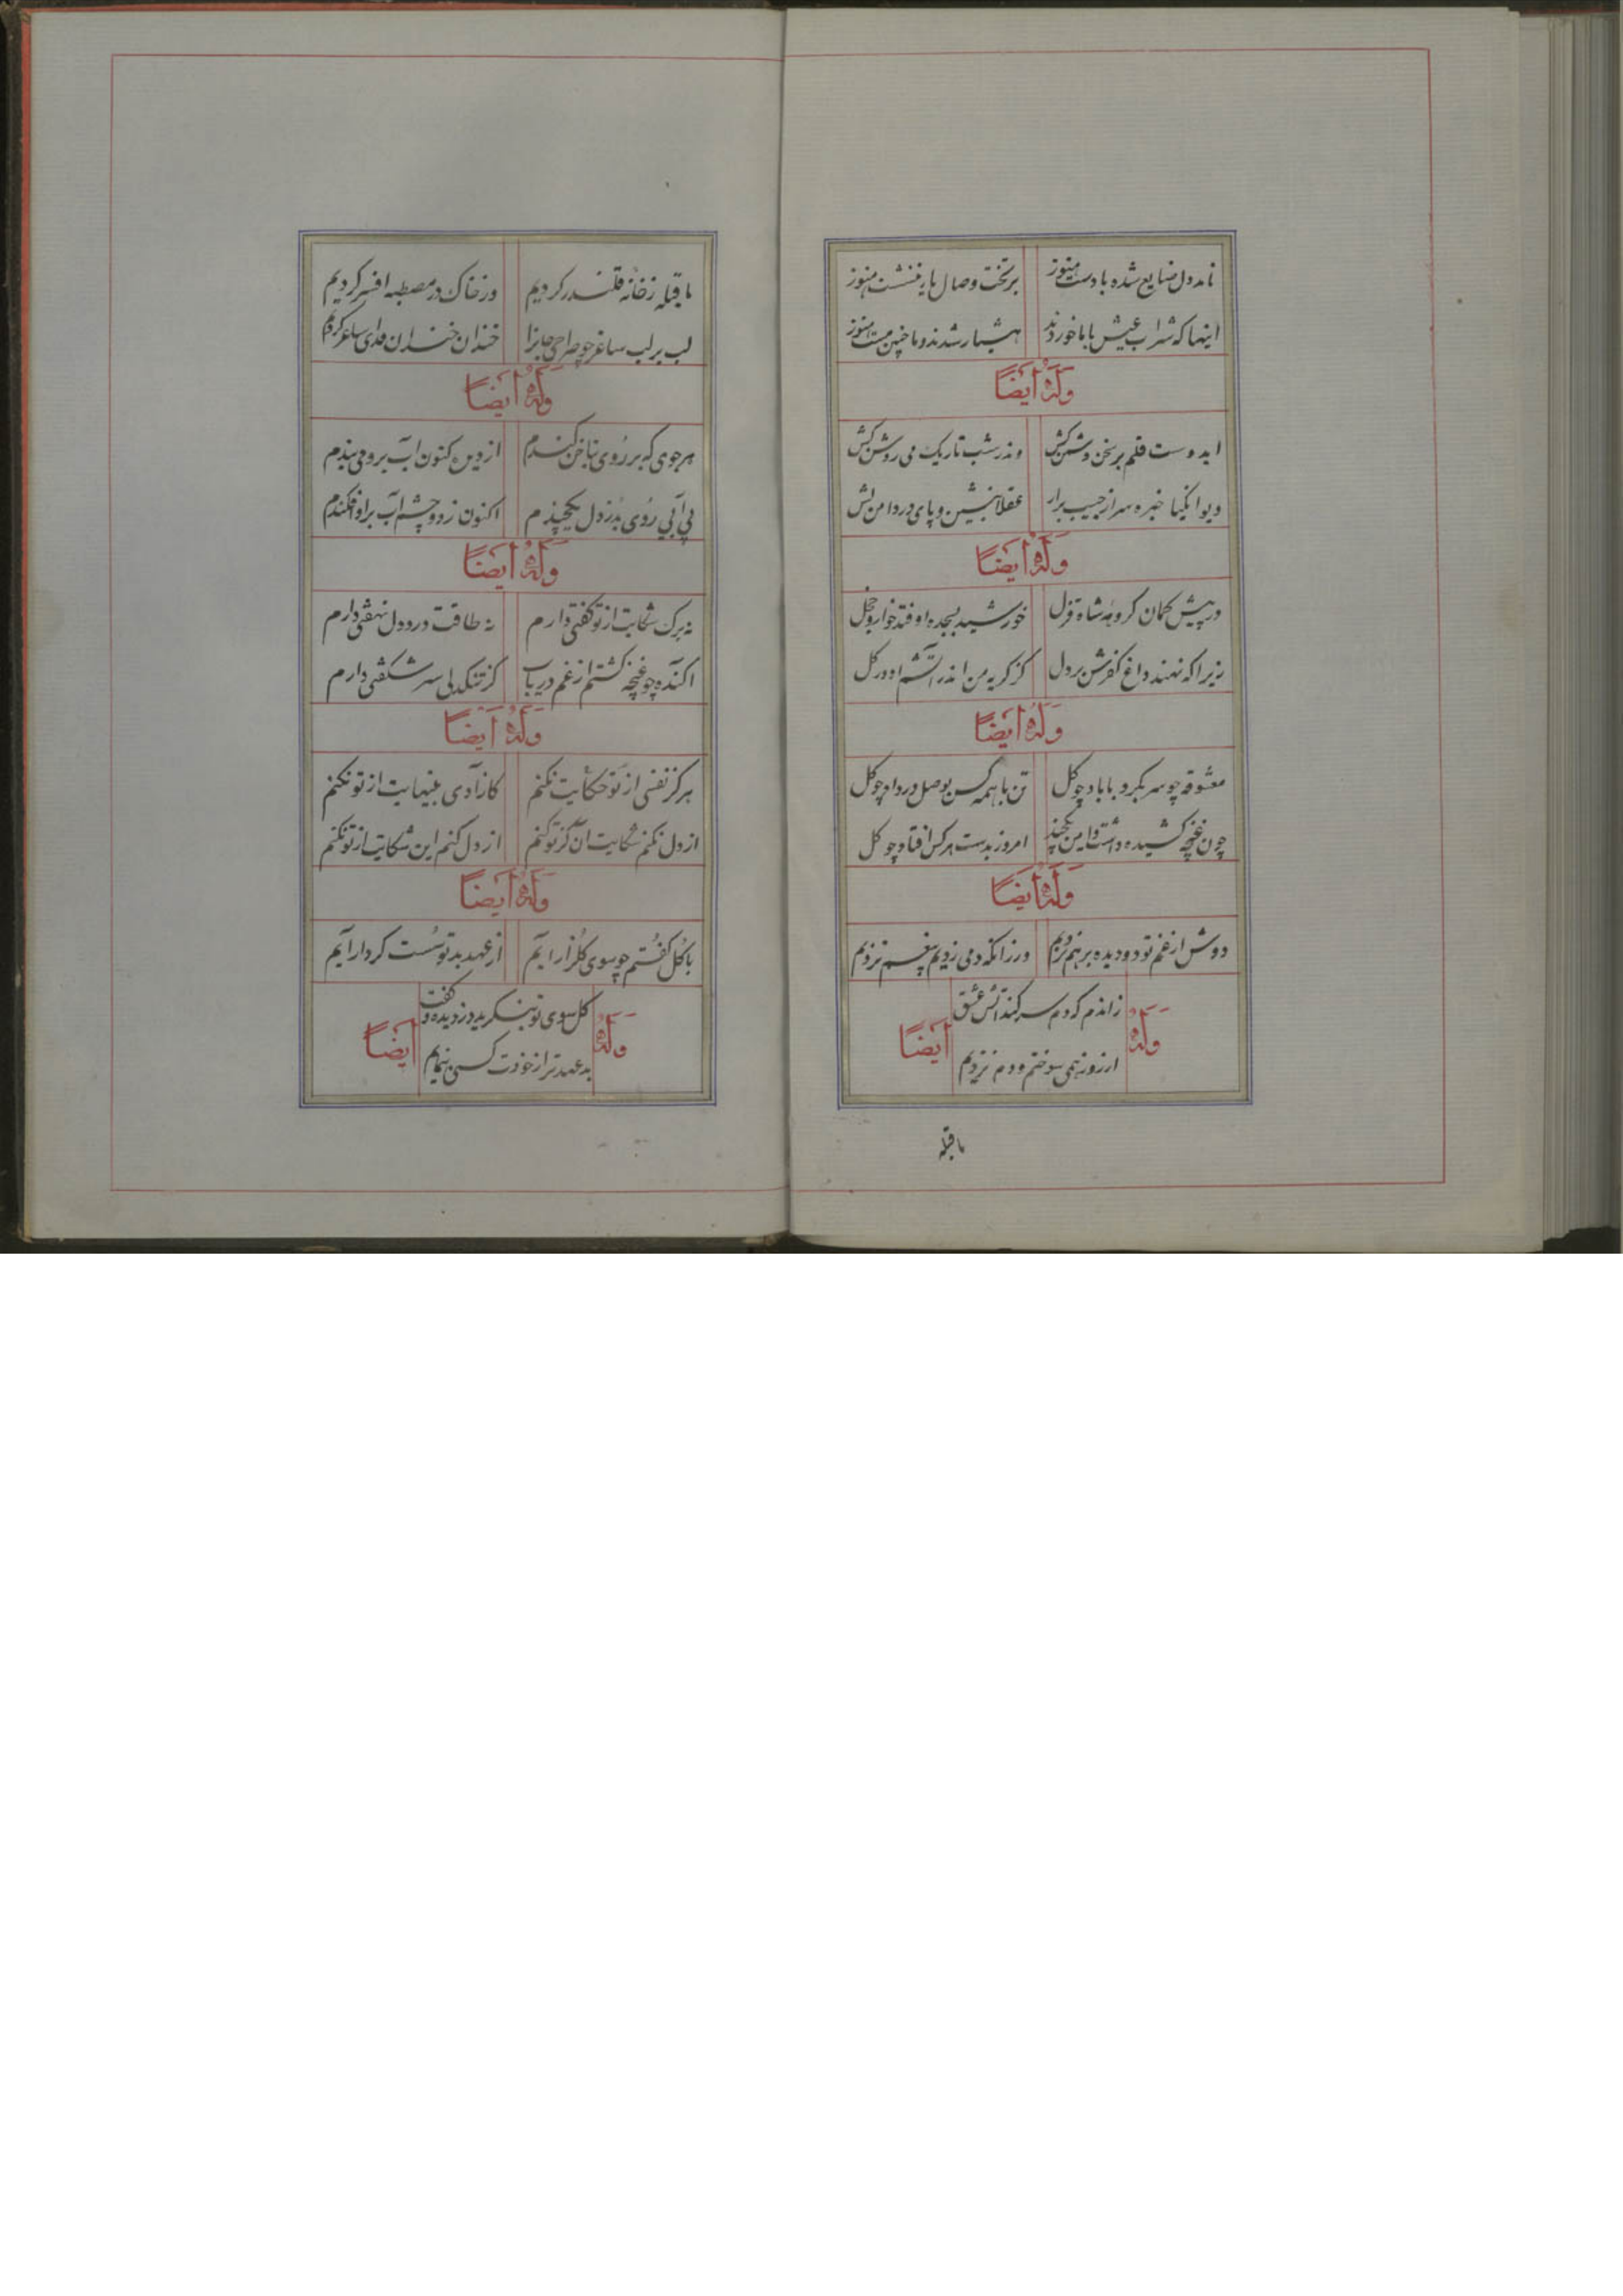 نامد دل ضایع شده با دست هنوز بر تخت وصال یار ننشست هنوز
اینها که شراب عیش با ما خوردند هشیار شدند و ما چنین مست هنوز
وَلَهُ أَيضًا
ایدوست قلم بر سخن دشمن کش وندر شب تاریک می روشن کش
دیوانگیا خیره سر از جیب برار عقلا بنشین و پای در دامن کش
وَلَهُ أَيضًا
در پیش کمان کروهه شاه قزل خورشید بسجده اوفتد خوار و خجل
زیرا که نهند داغ کفرش بر دل کز کریه من اندر آتشم او در کل
وَلَهُ أَيضًا
معشوقه چو سر بکرو با باد چو کل تن با همه کس بوصل در داد چو کل
چون غنچه کشیده داشت دامن یکچند امروز بدست هر کس افتاد چو کل
وَلَهُ أَيضًا
دوش از غم تو دو دیده بر هم نزدیم ورزانکه دمی زدیم بیغم نزدیم
وَلَهُ أَيضًا
زاندم که دم سر کند آتش عشق
از روز همی سوختم و دم نزدیم
ما قبله
ما قبله ز خانه قلندر کردیم وز خاک در مصطبه افسر کردیم
لب بر لب ساغر چو صراحی جانرا خندان خندان فدای ساغر کردیم
وَلَهُ أَيضًا
هر جوی که بر روی بناخن کندم از دیده کنون آب برو می بندم
بی آبی روی بد ز دل یکچندم اکنون ز دو چشم آب برافکندم
وَلَهُ أَيضًا
نه برک شکایت از تو کفتی دارم نه طاقت درد دل نهفتی دارم
اکنده چو غنچه کشتم از غم دریاب کز تنکدلی سر شکفتی دارم
وَلَهُ أَيضًا
هرکز نفسی از تو حکایت نکنم کازادی بینهایت از تو نکنم
از دل نکنم شکایت آن کز تو کنم از دل کنم این شکایت از تو نکنم
وَلَهُ أَيضًا
با کل کفتم چو سوی کلزار آیم از عهد بد تو سست کردار آیم
وَلَهُ أَيضًا
کل سوی تو بنکرید دزدیده و کفت
بد عهدتر از خودت کسی بنمایم